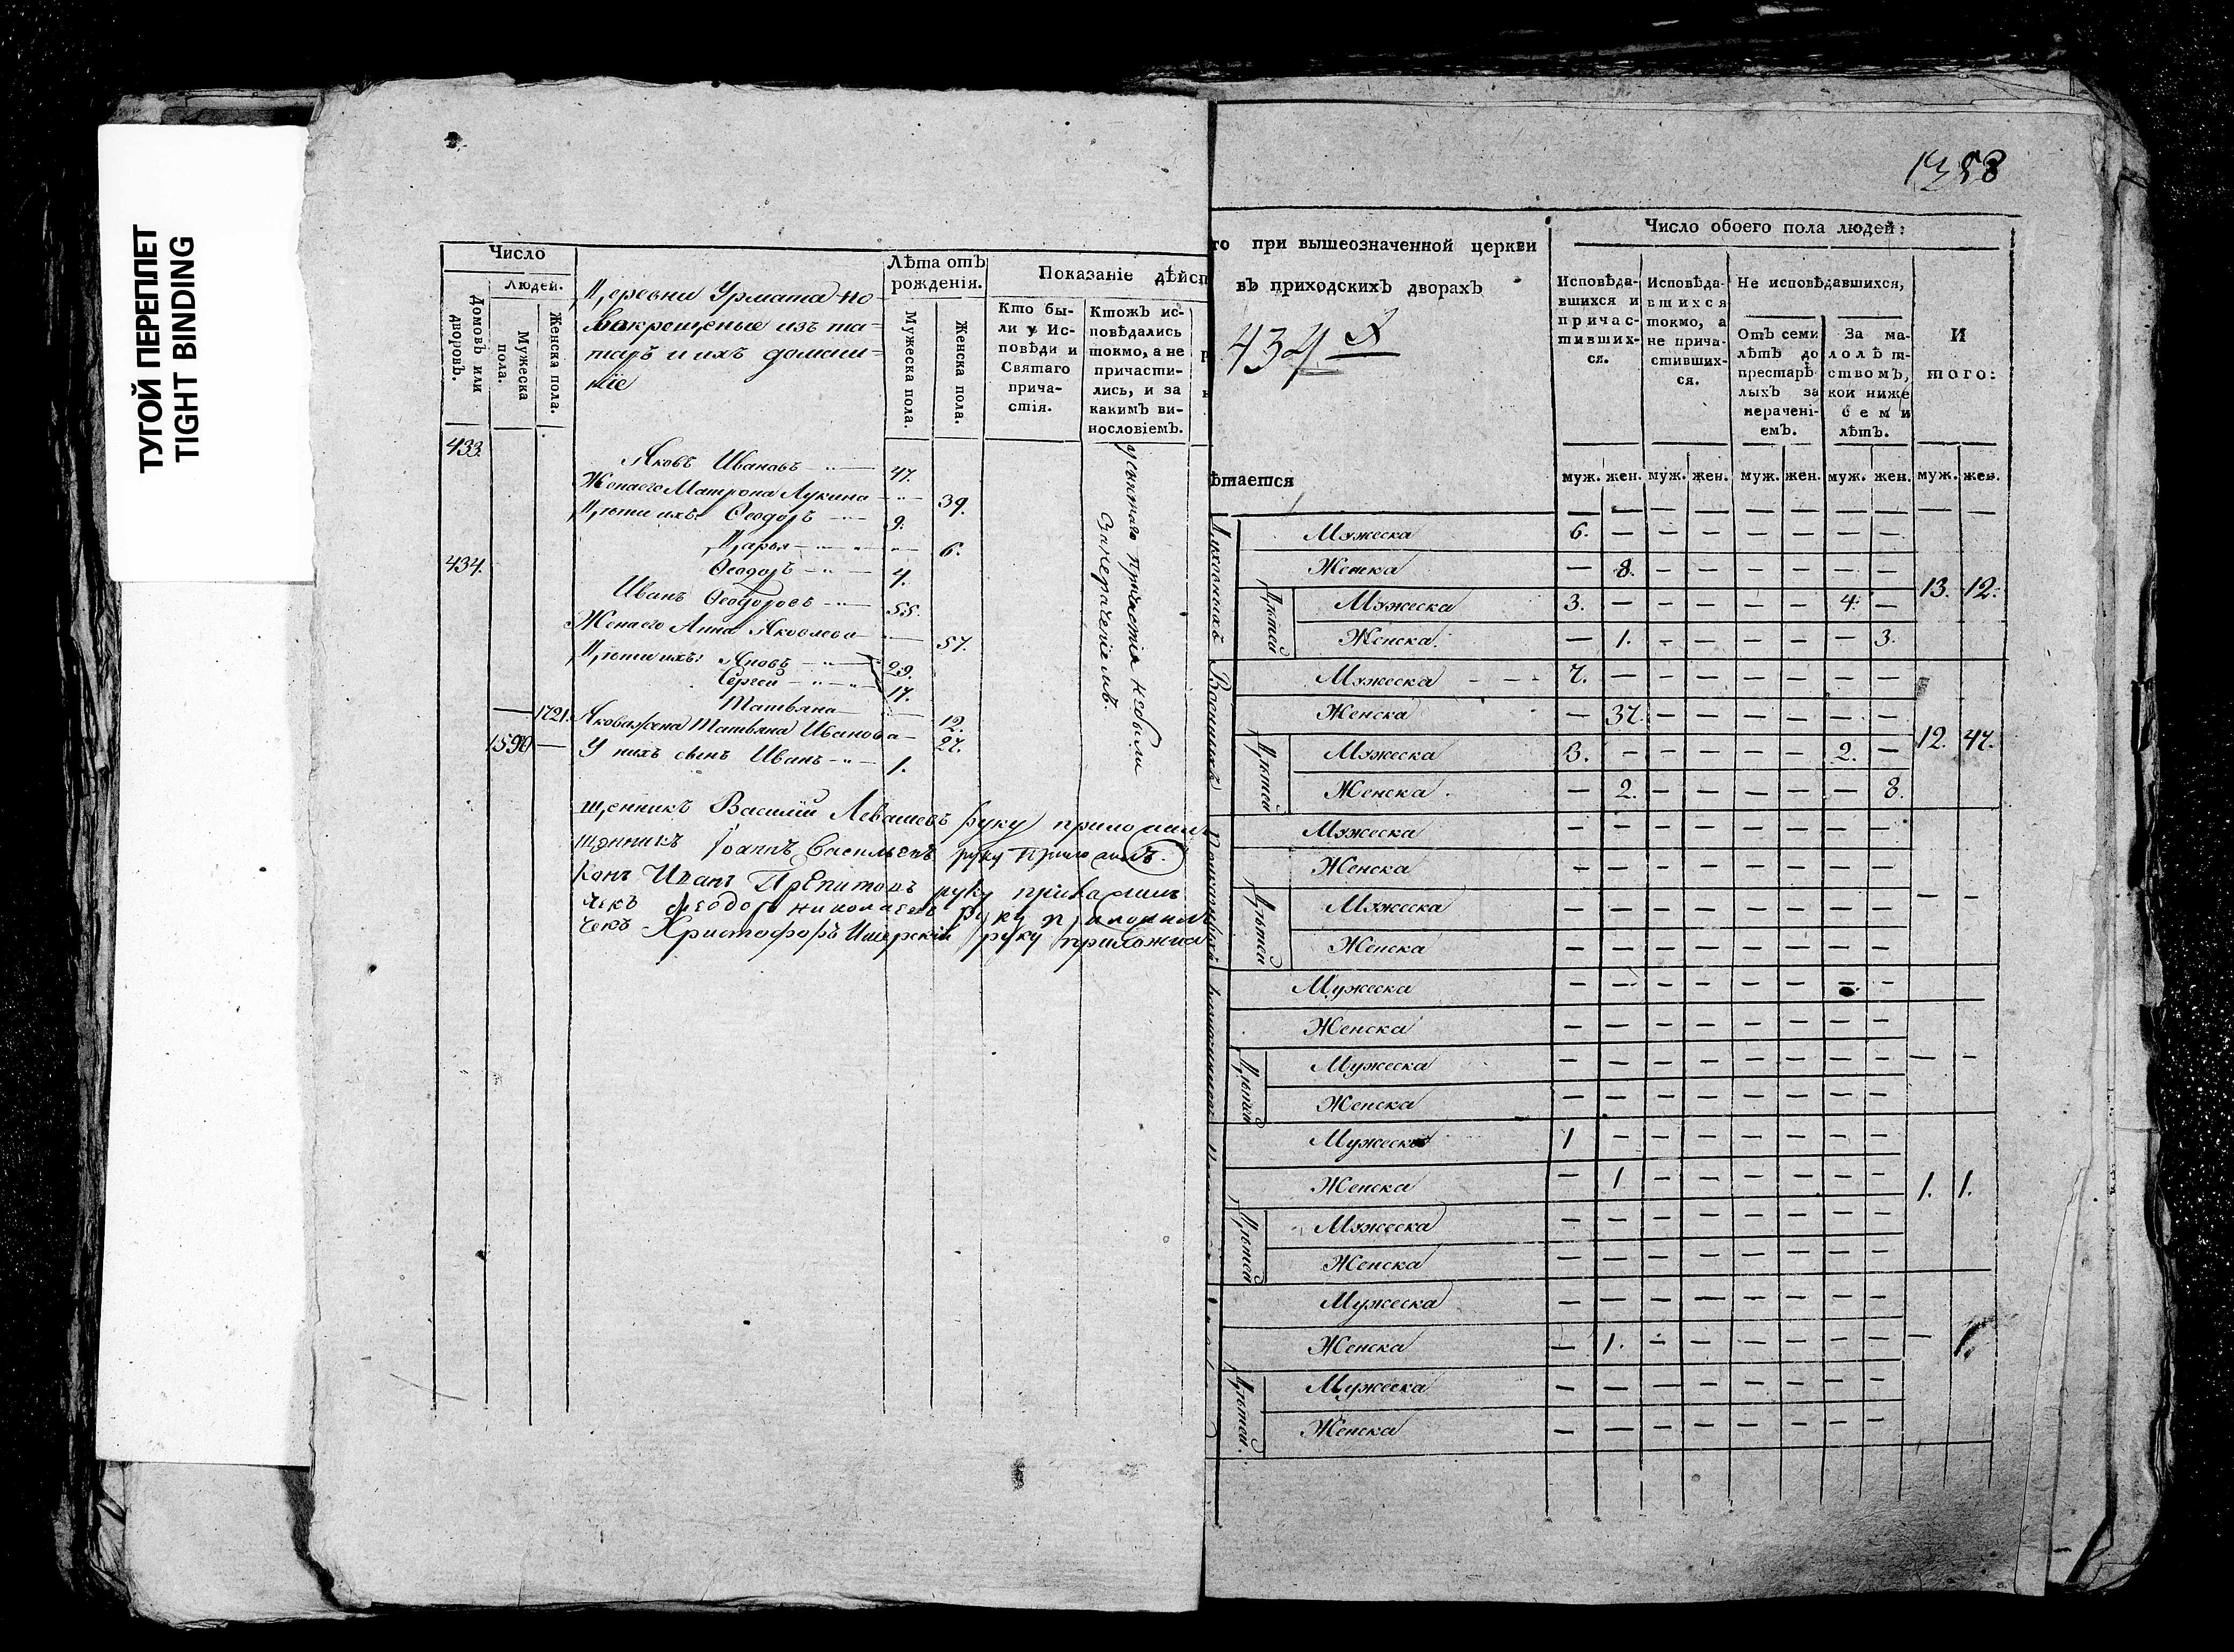 ТУГОЙ ПЕРЕПЛЕТ
TIGHT BINDING
Число
Людей.
Домовъ или дворовъ.
Мужеска пола.
Женска пола.
Деревни Урмата но
вокрещеные изъ та=
таръ и ихъ домаш=
ніе
Лѣта отъ рожденія.
Мужеска пола.
Женска пола.
Показаніе дѣйст
Кто бы-
ли у Ис-
повѣди и
Святаго
прича-
стія.
Ктожъ ис-
повѣдались
токмо, а не
причасти-
лись, и за
какимъ ви-
нословіемъ.
433. Яковъ Ивановъ 47.
Жена его Матрона Лукина 39.
Дѣти ихъ: Ѳеодоръ 9.
Дарья 6.
Ѳеодоръ 4.
434. Иванъ Ѳеодоровъ 55.
Жена его Анна Яковлева 57.
Дѣти ихъ: Яковъ 29.
Сергей 17.
Татьяна 12.
— 1721. Яковажена Татьяна Иванова 27.
1590 — У нихъ сынъ Иванъ 1.
у святаго Причастія небыли
Занераченіемъ.
щенникъ Василій Левашевъ руку приложилъ
щенникъ Іоаннъ Васильевъ руку приложилъ.
конъ Иванъ руку приложилъ
чекъ Ѳеодоръ Николаевъ руку приложилъ
чекъ Христофоръ руку приложил
1358
го при вышеозначенной церкви
въ приходскихъ дворахъ
434 х
ѣтается
Число обоего пола людей:
Исповѣда-
вшихся и
причас-
тивших-
ся.
Исповѣда-
вшихся
токмо, а
не прича-
стивших-
ся.
Не исповѣдавшихся,
Отъ семи
лѣтъ до
престарѣ
лыхъ за
нерачені-
емъ.
За ма-
лолѣт-
ствомъ,
кои ниже
семи
лѣтъ.
И
того:
муж. жен. муж. жен. муж. жен. муж. жен. муж. жен.
Духовныхъ
Мужеска 6. — — — — — — —
Женска — 8. — — — — — —
Дѣтей
Мужеска 3. — — — — — 4. —
Женска. — 1. — — — — — 3.
13. 12.
Военныхъ
Мужеска 7. — — — — — — —
Женска — 37. — — — — — —
Дѣтей
Мужеска 3. — — — — — 2. —
Женска. — 2. — — — — — 8.
12. 47.
Мужеска — — — — — — — —
Женска — — — — — — — —
Дѣтей
Мужеска — — — — — — — —
Женска — — — — — — — —
— —
Мужеска — — — — — — — —
Женска — — — — — — — —
Дѣтей
Мужеска — — — — — — — —
Женска — — — — — — — —
— —
Мужеска 1 — — — — — — —
Женска — 1 — — — — — —
Дѣтей
Мужеска — — — — — — — —
Женска — — — — — — — —
1. 1.
Мужеска — — — — — — — —
Женска — 1. — — — — — —
Дѣтей
Мужеска — — — — — — — —
Женска — — — — — — — —
— 1.